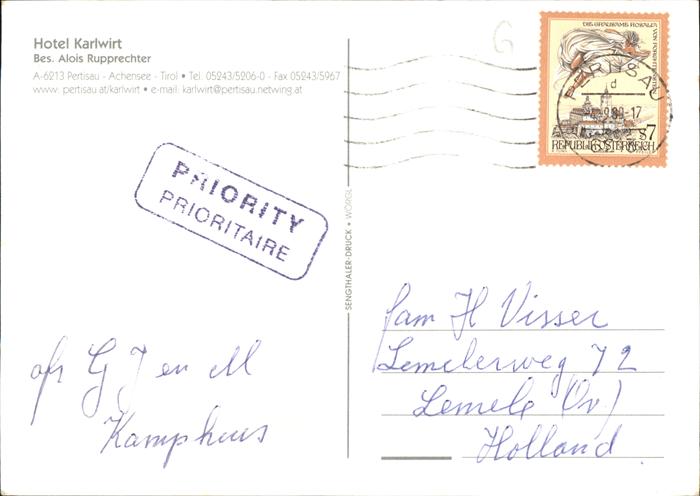 Hotel Karlwirt
Bes. Alois Rupprechter
A-6213 Pertisau - Achensee - Tirol • Tel. 05243/5206-0 - Fax 05243/5967
www. pertisau.at/karlwirt • e-mail: karlwirt@pertisau.netwing.at
PRIORITY
PRIORITAIRE
afz G J en M
Kamphuis
SENGTHALER-DRUCK • WÖRGL
DIE GRAUSAME ROSALIA VON FORCHTENSTEIN
S7
REPUBLIK ÖSTERREICH
PERTISAU
fam H Visser
Lemelerweg 72
Lemele (Ov.)
Holland